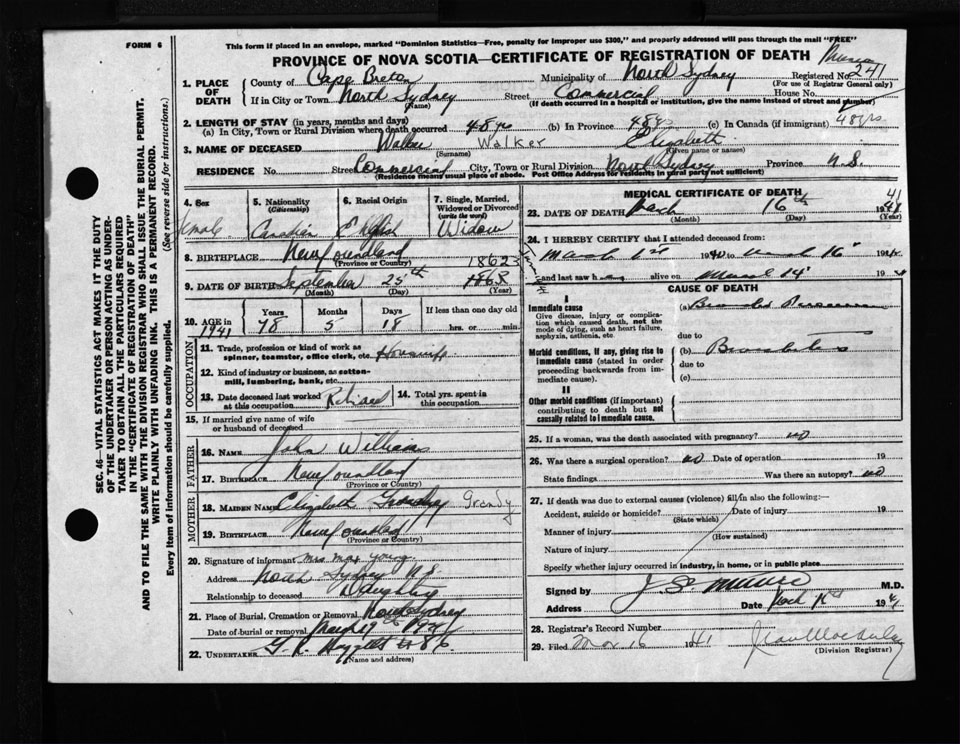 FORM 6
This form if placed in an envelope, marked "Dominion Statistics—Free, penalty for improper use $300," and properly addressed will pass through the mail "FREE"
PROVINCE OF NOVA SCOTIA—CERTIFICATE OF REGISTRATION OF DEATH
1. PLACE OF DEATH County of Cape Breton Municipality of North Sydney Registered No. 241
(For use of Registrar General only)
If in City or Town North Sydney Street Commercial House No.
(Name) (If death occurred in a hospital or institution, give the name instead of street and number)
2. LENGTH OF STAY (in years, months and days)
(a) In City, Town or Rural Division where death occurred 48 yrs (b) In Province 48 yrs (c) In Canada (if immigrant) 48 yrs
3. NAME OF DECEASED Walker Walker Elizabeth
(Surname) (Given name or names)
RESIDENCE No. Street Commercial City, Town or Rural Division North Sydney Province N.S.
(Residence means usual place of abode. Post Office Address for residents in rural parts not sufficient)
4. Sex 5. Nationality (Citizenship) 6. Racial Origin 7. Single, Married, Widowed or Divorced (write the word)
Female Canadian English Widow
8. BIRTHPLACE Newfoundland
(Province or Country) 1862
9. DATE OF BIRTH September 25th 1863
(Month) (Day)
10. AGE in Years Months Days If less than one day old
1941 78 5 18 hrs. or min.
OCCUPATION
11. Trade, profession or kind of work as spinner, teamster, office clerk, etc. Housewife
12. Kind of industry or business, as cotton-mill, lumbering, bank, etc.
13. Date deceased last worked at this occupation Retired 14. Total yrs. spent in this occupation
15. If married give name of wife or husband of deceased
FATHER
16. NAME John William
17. BIRTHPLACE Newfoundland
(Province or Country)
MOTHER
18. MAIDEN NAME Elizabeth Grandy
19. BIRTHPLACE Newfoundland
(Province or Country)
20. Signature of informant Mrs Max Young
Address North Sydney N.S.
Relationship to deceased Daughter
21. Place of Burial, Cremation or Removal North Sydney
Date of burial or removal March 19 1941
22. UNDERTAKER
(Name and address)
MEDICAL CERTIFICATE OF DEATH
23. DATE OF DEATH March 16th 1941
(Month) (Day) (Year)
24. I HEREBY CERTIFY that I attended deceased from:
March 1st 1940 to March 16
and last saw h alive on March 14 19
CAUSE OF DEATH
I
Immediate cause
Give disease, injury or complication which caused death, not the mode of dying, such as heart failure, asphyxia, asthenia, etc.
(a)
due to
Morbid conditions, if any, giving rise to immediate cause (stated in order proceeding backwards from immediate cause).
(b)
due to
(c)
II
Other morbid conditions (if important) contributing to death but not causally related to immediate cause.
25. If a woman, was the death associated with pregnancy? no
26. Was there a surgical operation? no Date of operation 19
State findings Was there an autopsy? no
27. If death was due to external causes (violence) fill in also the following:—
Accident, suicide or homicide? Date of injury 19
(State which)
Manner of injury
(How sustained)
Nature of injury
Specify whether injury occurred in industry, in home, or in public place
Signed by M.D.
Address Date March 1941
28. Registrar's Record Number
29. Filed Mar 16 41
(Division Registrar)
SEC. 46—VITAL STATISTICS ACT MAKES IT THE DUTY
OF THE UNDERTAKER OR PERSON ACTING AS UNDER-
TAKER TO OBTAIN ALL THE PARTICULARS REQUIRED
IN THE "CERTIFICATE OF REGISTRATION OF DEATH"
AND TO FILE THE SAME WITH THE DIVISION REGISTRAR WHO SHALL ISSUE THE BURIAL PERMIT.
WRITE PLAINLY WITH UNFADING INK. THIS IS A PERMANENT RECORD.
Every item of information should be carefully supplied. (See reverse side for instructions.)